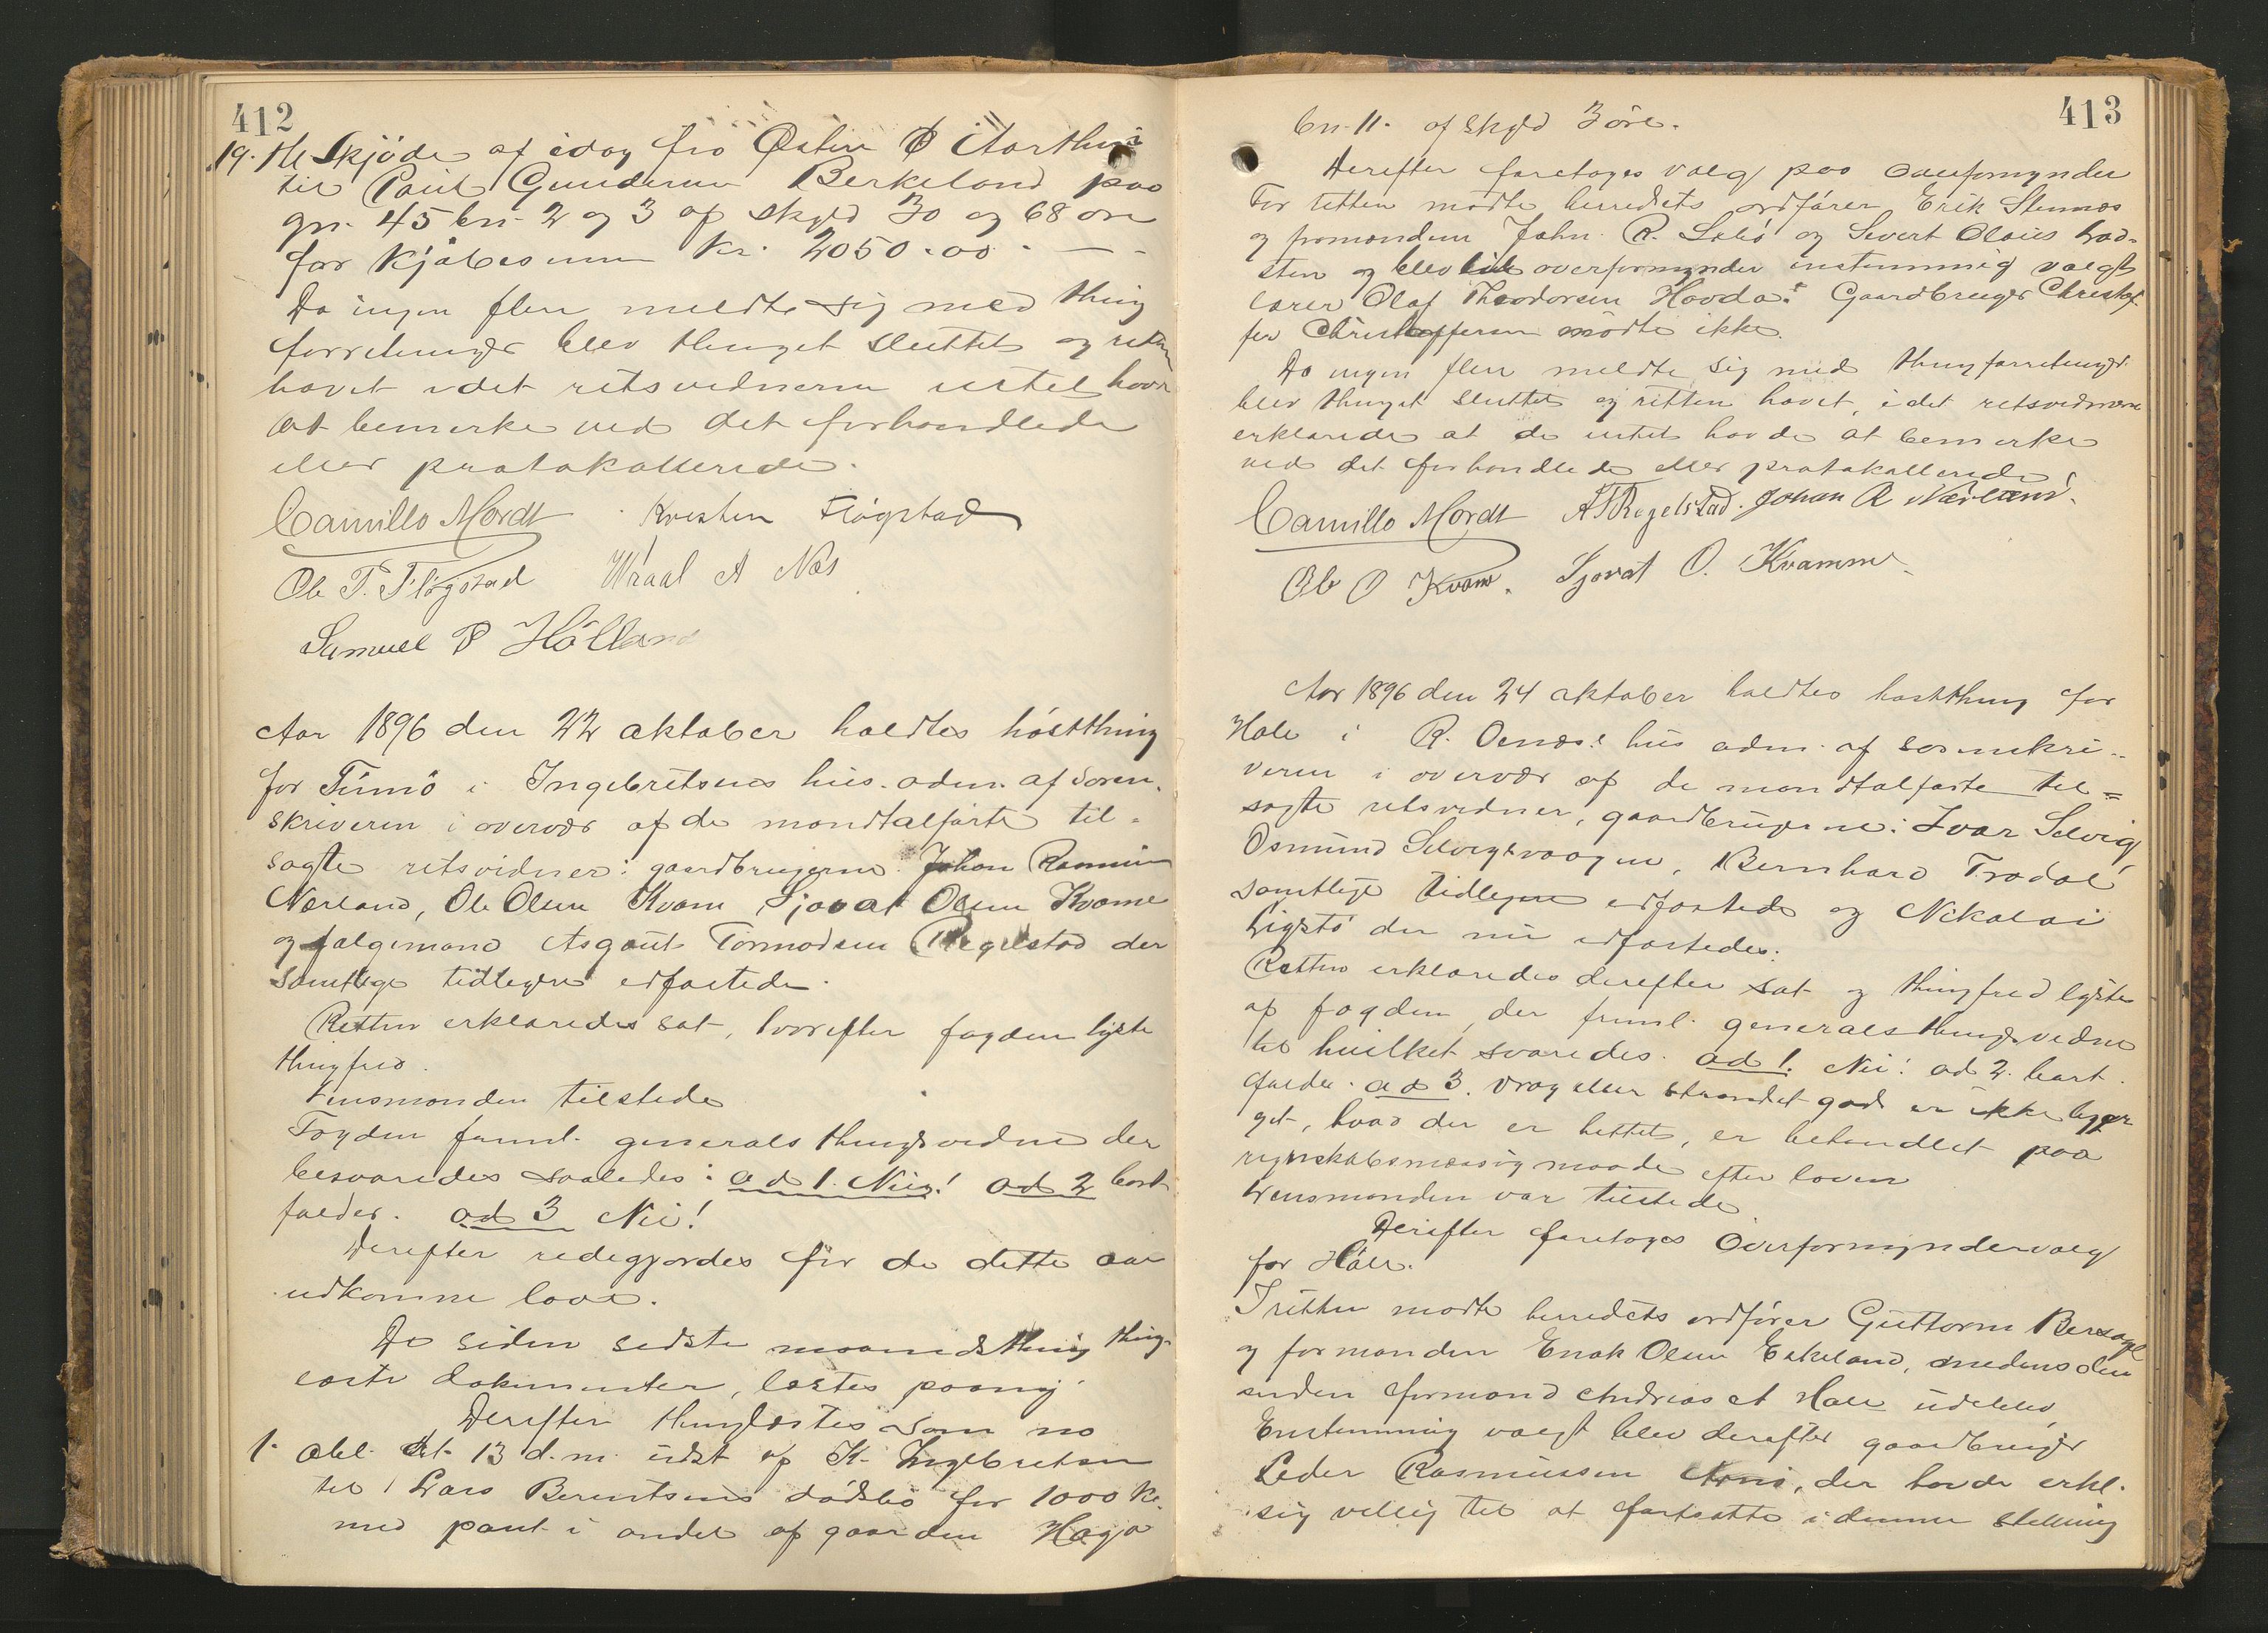 412
19. Et Skjöde af idag fra Østen Ø Aarthun
til Paul Gundersen Berkeland paa
gn. 45 bn. 2 og 3 af skyld 30 og 68 øre
for Kjöbesum Kr. 2050.00. —
Da ingen flere meldte sig med thing
forretninger blev thinget sluttet og retten
hævet idet retsvidnerne intet havde
at bemerke ved det forhandlede
eller protokollerede.
Camillo Mordt Kristen Fløgstad
Ole T. Fløgstad Wraal A Næs
Samuel P Hölland
Aar 1896 den 22 oktober holdtes höstthing
for Finnö i Ingebretsens hus adm. af soren-
skriveren i overvær af de mandtalførte til-
sagte retsvidner: gaardbrugerne Johan Rasmussen
Nærland, Ole Olsen Kvam Sjovat Olsen Kvame
og følgemand Asgaut Tormodsen Regelstad der
samtlige tidligere edfæstede.
Retten erklæredes sat, hvorefter fogden lyste
thingfred.
Lensmanden tilstede
Fogden freml. generalsthingsvidne der
besvaredes saaledes: ad 1. Nei! ad 2 bort
falder. ad 3 Nei!
Derefter redegjordes for de dette aar
udkomne love.
De siden sidste maanedsthing thing-
læste dokumenter, læstes paany
Derefter thinglæstes som no
1. Obl. dat. 13 d.m. udst af K. Ingebretsen
til Lars Berentsens dödsbo for 1000 Kr.
med pant i andel af gaarden Haga
413
bn. 11. af skyld 3 öre.
Derefter foretoges valg paa overformynder
For retten mödte herredets ordfører Erik Stennes
og formændene John R. Ladsten og Sivert Olaus Lad-
sten og blev til overformynder enstemmig valgt
lærer Olaf Theodorsen Hovda. Gaardbruger Christof-
fer Christoffersen mödte ikke.
Da ingen flere meldte sig med thingforretninger
blev thinget sluttet og retten hævet, idet retsvidnerne
erklærede at de intet havde at bemerke
ved det forhandlede eller protokollerede.
Camillo Mordt A T Regelstad. Johan R Nærland.
Ole O Kvam. Sjovat O. Kvamme
Aar 1896 den 24 oktober holdtes hostthing for
Hole i R. Oenæs' hus adm. af sorenskri-
veren i overvær af de mandtalførte til-
sagte retsvidner, gaardbrugerne: Ivar Selvig
Osmund Selvigsvaagen, Bernhard Tradal
samtlige tidligere edfæstede og Nikolai
Ligstö der nu edfæstedes:
Retten erklæredes derefter sat og thingfred lystes
af fogden, der freml. generalsthingsvidne
til hvilket svaredes. ad 1. Nei! ad 2. bort
falder. ad 3. Vrag eller strandet gods er ikke
get, hvad der er hettet, er behandlet paa
regnskabsmæssig maade efter loven
Lensmanden var tilstede
Derefter foretoges Overformyndervalg
for Hole.
I retten mödte herredets ordförer Guttorm Bersagel
og formanden Enok Olsen Eskeland, medens den
anden formand Andreas A Hole udeblev
Enstemmig valgt blev derefter gaardbruger
Peder Rasmussen, der havde erkl.
sig villig til at fortsætte i denne stilling